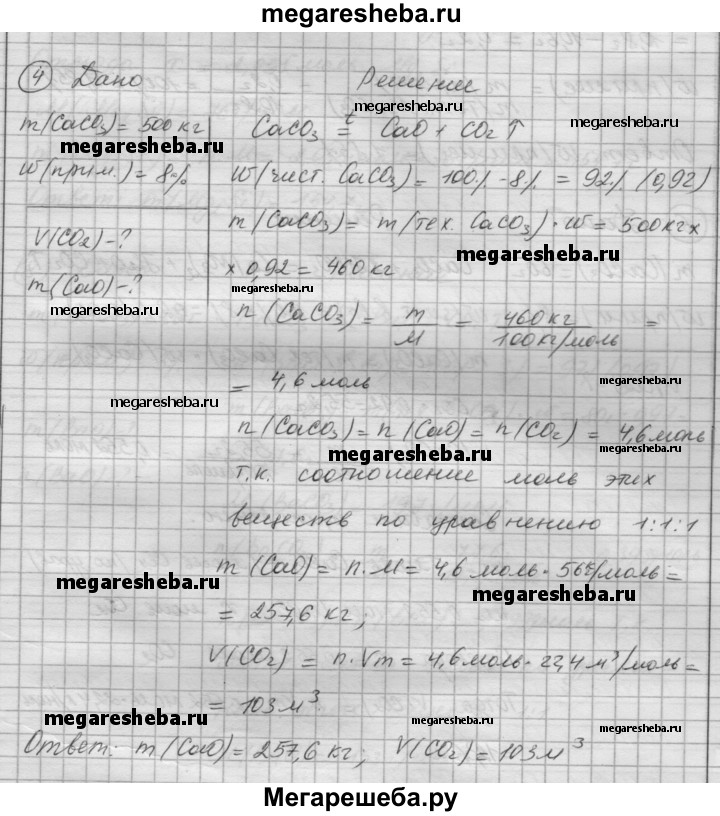 megaresheba.ru
④ Дано Решение
megaresheba.ru
m(CaCO₃) = 500 кг CaCO₃ =ᵗ CaO + CO₂↑ megaresheba.ru
megaresheba.ru
W(прим.) = 8% W(чист. CaCO₃) = 100% - 8% = 92% (0,92)
V(CO₂) - ? m(CaCO₃) = m(тех. CaCO₃) · W = 500 кг x
megaresheba.ru
m(CaO) - ? x 0,92 = 460 кг
megaresheba.ru
megaresheba.ru n(CaCO₃) = m/M = 460 кг/100 кг/моль =
= 4,6 моль megaresheba.ru
megaresheba.ru
n(CaCO₃) = n(CaO) = n(CO₂) = 4,6 моль
megaresheba.ru
т.к. соотношение моль этих
веществ по уравнению 1:1:1
m(CaO) = n·M = 4,6 моль · 56 г/моль =
megaresheba.ru
megaresheba.ru
= 257,6 кг,
V(CO₂) = n·Vm = 4,6 моль · 22,4 м³/моль =
= 103 м³
megaresheba.ru megaresheba.ru
Ответ: m(CaO) = 257,6 кг; V(CO₂) = 103 м³
Мегарешеба.ру